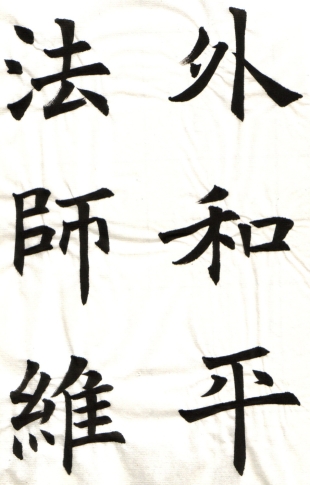 外和平
法師維